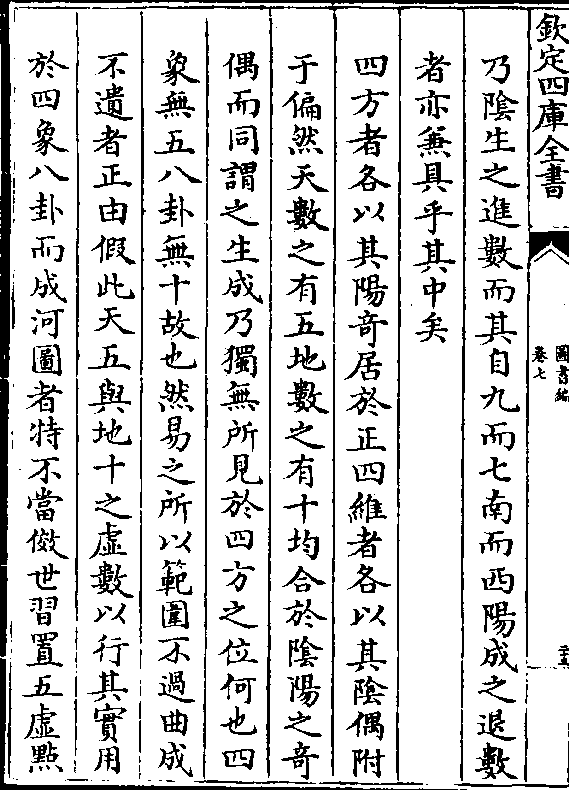 欽定四庫全書
圖書編
卷七
乃陰生之進數而其自九而七南而西陽成之退數
者亦兼具乎其中矣
四方者各以其陽奇居於正四維者各以其陰偶附
于偏然天數之有五地數之有十均合於陰陽之奇
偶而同謂之生成乃獨無所見於四方之位何也四
象無五八卦無十故也然易之所以範圍不過曲成
不遺者正由假此天五與地十之虛數以行其實用
於四象八卦而成河圖者特不當傚世習置五虛點